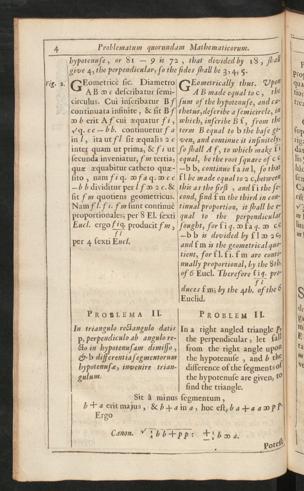 4 Problematum quorundam Mathematicorum.
hypotenuse, or 81 — 9 is 72, that divided by 18, shall
give 4, the perpendicular, so the sides shall be 3.4.5.
Fig. 2.
GEometricè sic. Diametro
AB ꝏ c describatur semi-
circulus. Cui inscribatur B f
continuata infinitè, & sit B f
ꝏ b erit A f cui æquatur f i,
√q. cc — bb. continuetur f a
in l, ita ut f l sit æqualis 2 c
inter quam ut primam, & f i ut
secunda inveniatur, f m tertia,
quæ æquabitur catheto quæ-
sito, nam f i q. ꝏ f a q. ꝏ c c
— b b dividitur per l f ꝏ 2 c. &
sit f m quotiens geometricus.
Nam f l. f i. f m sunt continuè
proportionales; per 8 El. sexti
Eucl. ergo f i q. producit f m,
f l
per 4 sexti Eucl.
GEometrically thus. Upon
AB made equal to c, the
sum of the hypotenuse, and ca-
thetus, describe a semicircle, in
which, inscribe B f, from the
term B equal to b the base gi-
ven, and continue it infinitely,
so shall A f, to which make f i
equal, be the root square of c c
— b b, continue f a in l, so that
f l be made equal to 2 c, between
this as the first, and f i the se-
cond, find f m the third in con-
tinual proportion, it shall be e-
qual to the perpendicular
sought, for f i q. ꝏ f a q. ꝏ c c
— b b is divided by f l ꝏ 2 c,
and f m is the geometrical quo-
tient, for f l. f i. f m are conti-
nually proportional, by the 8th.
of 6 Eucl. Therefore f i q. pro-
f l
duces f m; by the 4th. of the 6
Euclid.
PROBLEMA II.
In triangulo rectangulo datis
p, perpendiculo ab angulo re-
cto in hypotenusam demisso,
& b differentia segmentorum
hypotenusæ, invenire trian-
gulum.
PROBLEM II.
In a right angled triangle p,
the perpendicular, let fall
from the right angle upon
the hypotenuse, and b the
difference of the segments of
the hypotenuse are given, to
find the triangle.
Sit a minus segmentum,
b + a erit majus, & b + a in a, hoc est, b a + a a ꝏ p p
Ergo
Canon. √ ¼ b b + p p : ± ½ b ꝏ a.